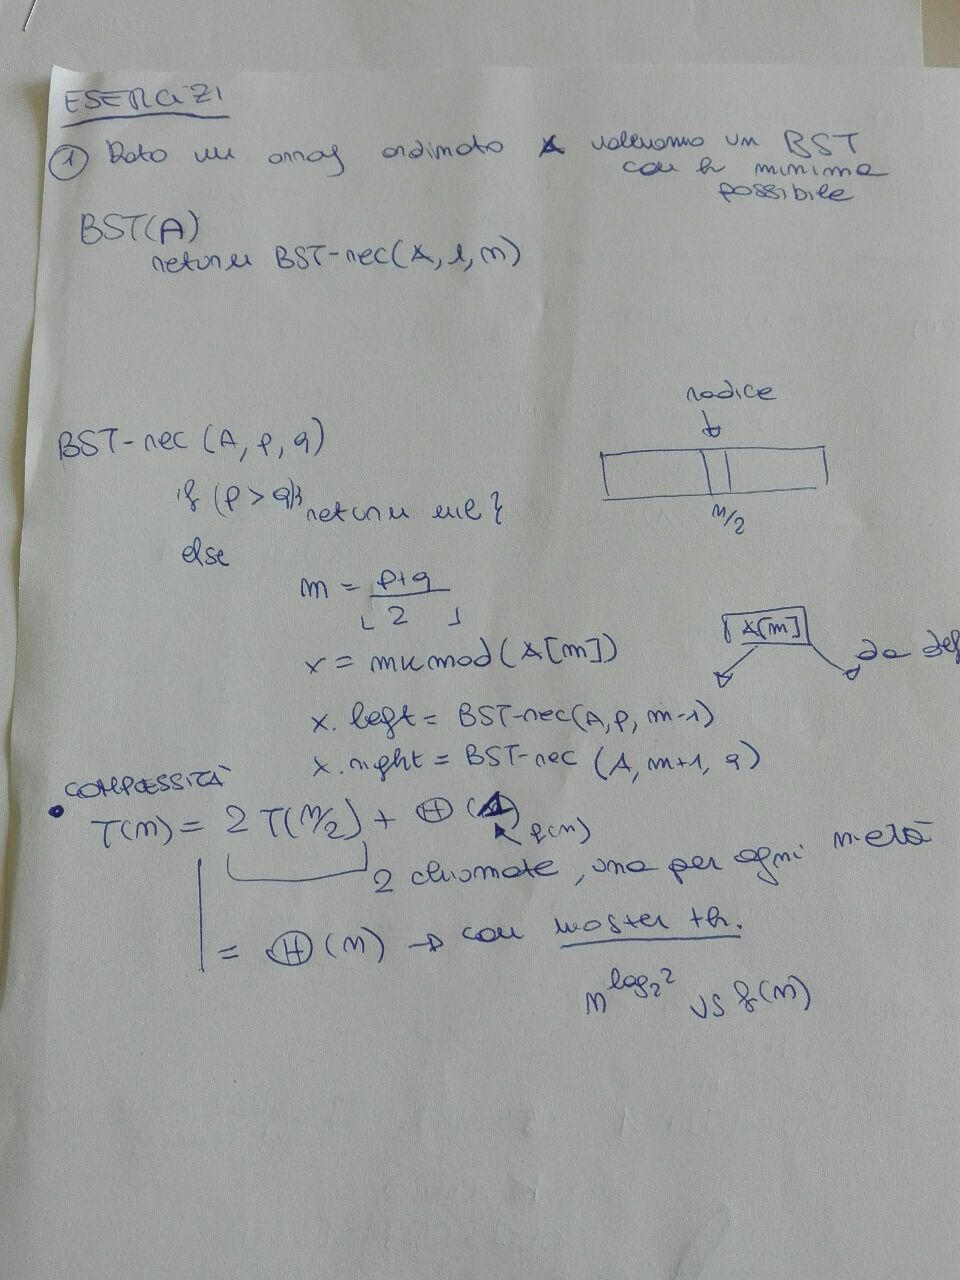 ESERCIZI
① Dato un array ordinato A vogliamo un BST
con h minima
possibile
BST(A)
return BST-rec(A, 1, n)
radice
BST-rec (A, p, q)
if (p > q){
return nil }
n/2
else
m = ⌊p+q / 2⌋
x = mknod(A[m])
A[m]
da def
x.left = BST-rec(A, p, m-1)
x.right = BST-rec (A, m+1, q)
COMPLESSITÀ
• T(n) = 2 T(n/2) + Θ(1)
f(n)
2 chiamate, una per ogni metà
= Θ(n) → con master th.
n^log₂2 vs f(n)